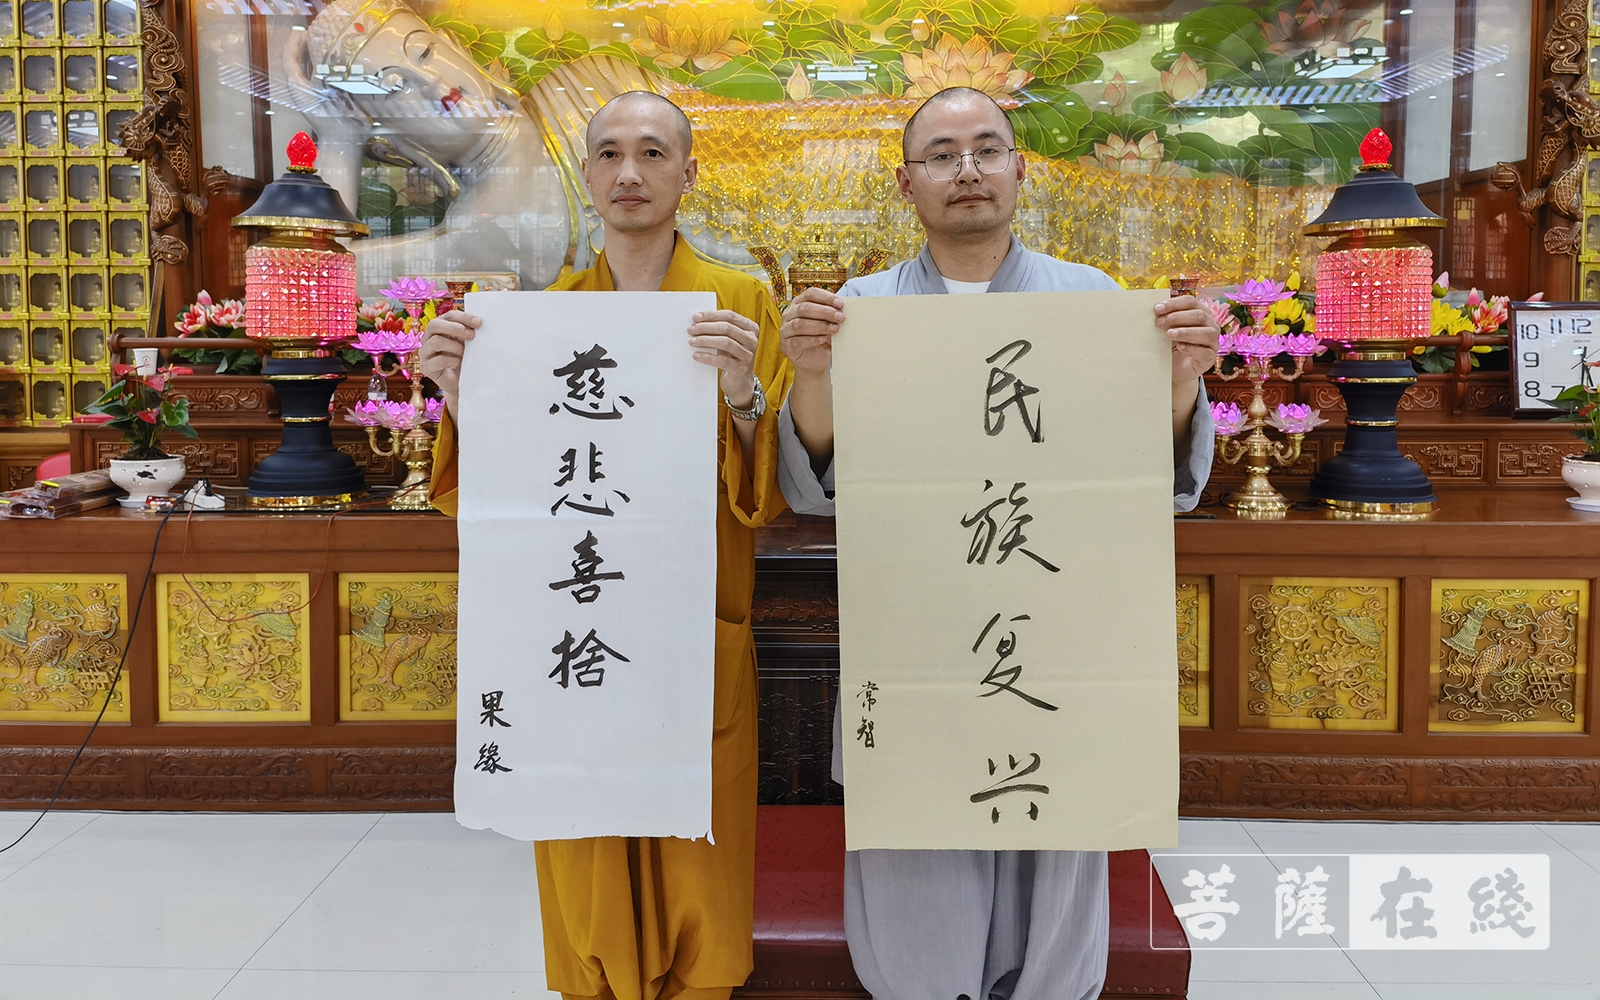 慈悲喜捨
果缘
民族复兴
常智
10 11 12
9
8 7
菩薩在綫